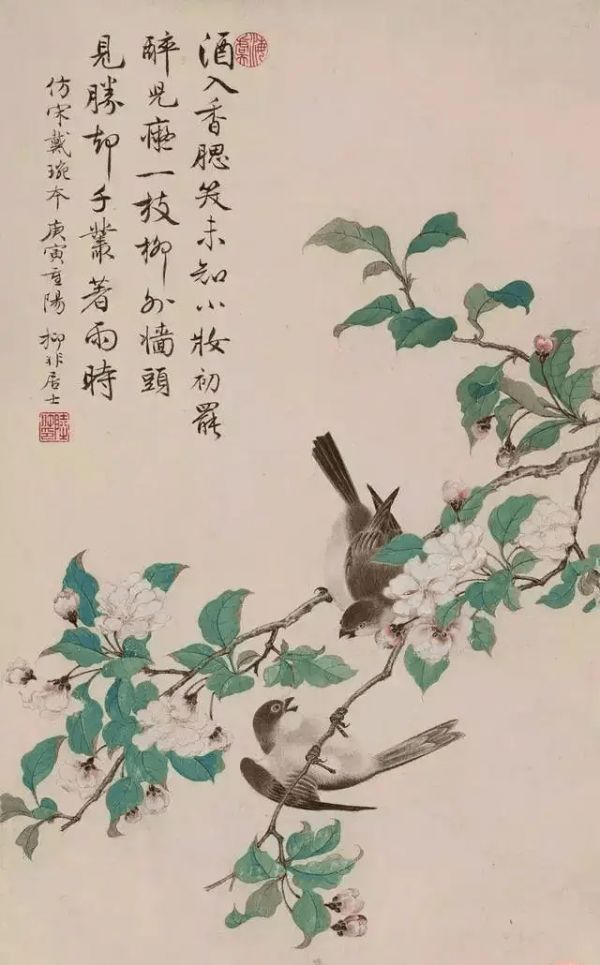 酒入香腮笑未知小妝初罷
醉児癡一枝柳外墻頭
見勝却千叢著雨時
仿宋戴琬本 庚寅重陽 柳非居士